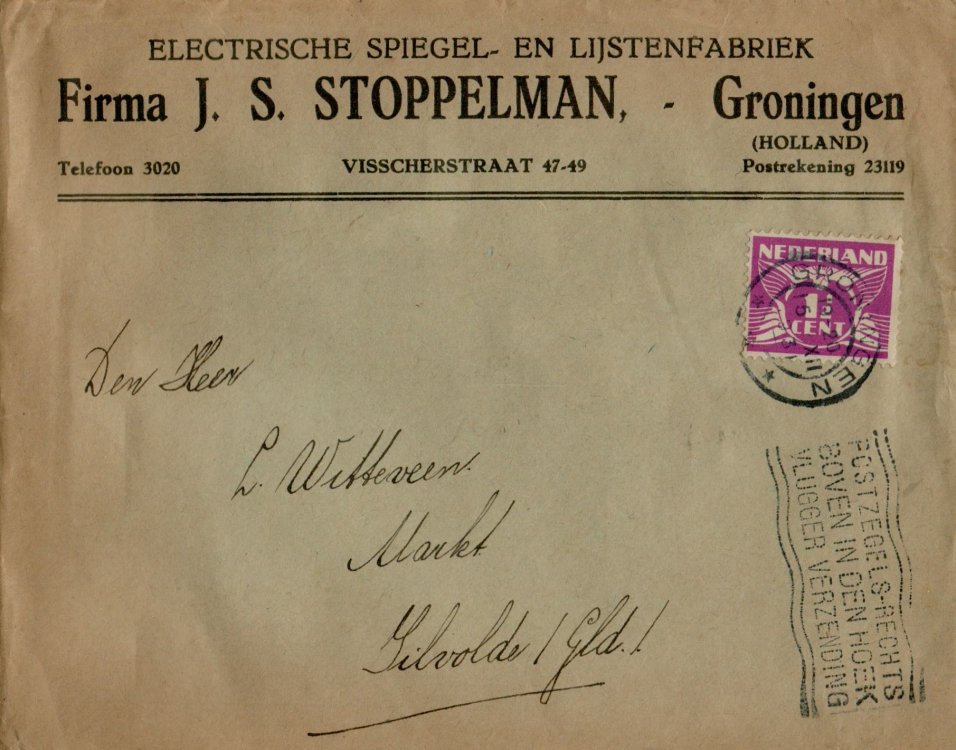 ELECTRISCHE SPIEGEL- EN LIJSTENFABRIEK
Firma J. S. STOPPELMAN, - Groningen
(HOLLAND)
Telefoon 3020 VISSCHERSTRAAT 47-49 Postrekening 23119
NEDERLAND
1½
CENT
GRONINGEN
XII
Den Heer
L. Witteveen.
Markt
Gilvolde / Gld. /
POSTZEGELS-RECHTS
BOVEN IN DEN HOEK
VLUGGER VERZENDING